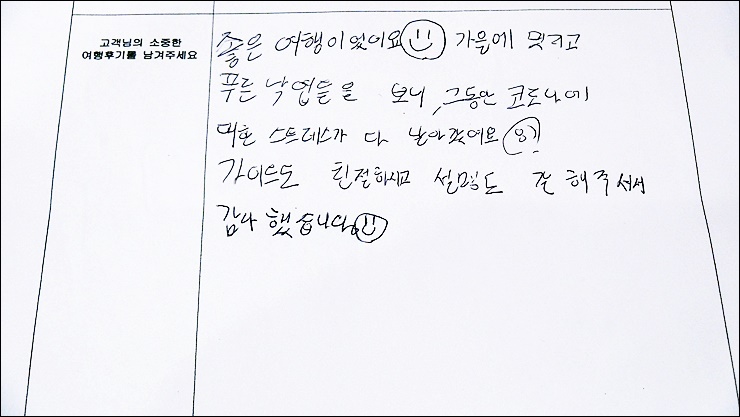 고객님의 소중한
여행후기를 남겨주세요
좋은 여행이었어요 가을에 멋지고
푸른 낙엽들을 보니, 그동안 코로나에
대한 스트레스가 다 날아갔어요
가이드도 친절하시고 설명도 잘 해주셔서
감사했습니다